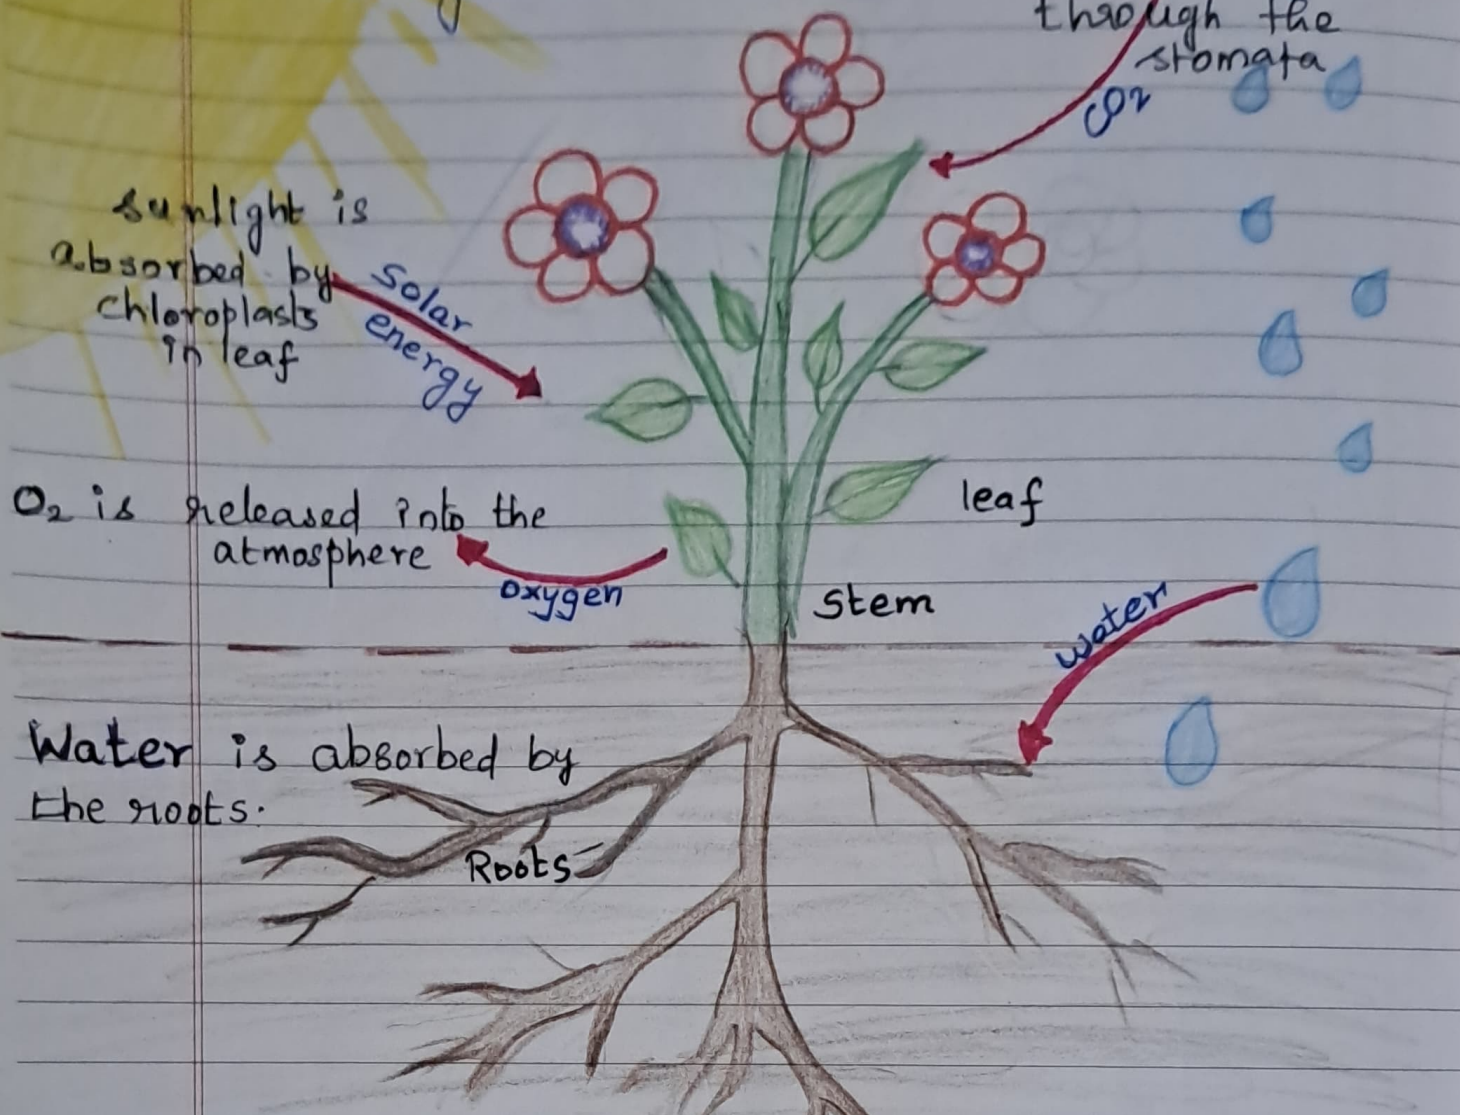 through the
stomata
CO2
sunlight is
absorbed by
chloroplasts
in leaf
Solar
energy
O2 is released into the
atmosphere
oxygen
leaf
Stem
water
Water is absorbed by
the roots.
Roots